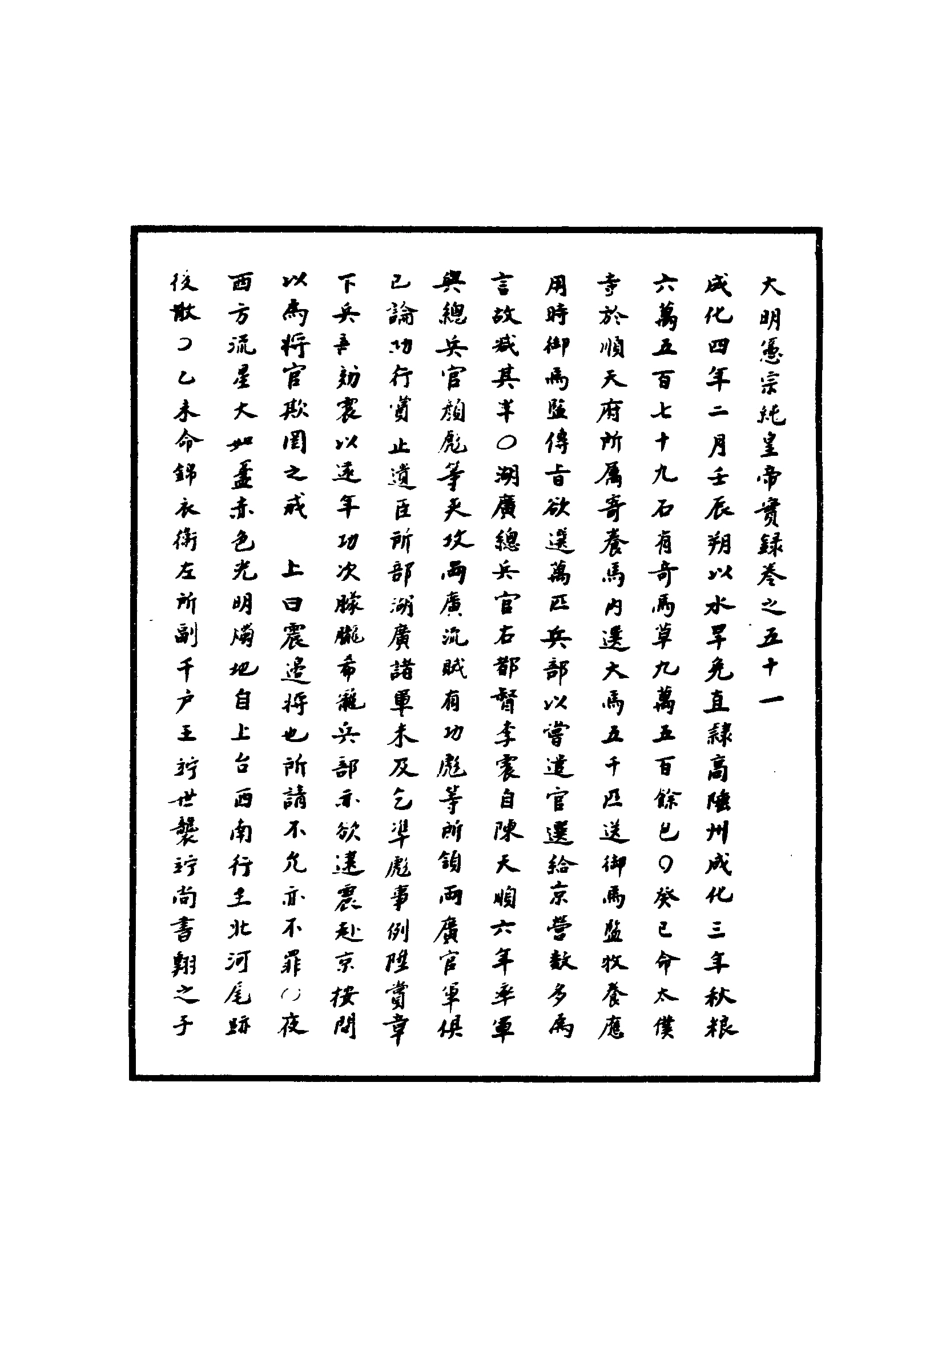 大明憲宗純皇帝實録卷之五十一
成化四年二月壬辰朔以水旱免直隸高郵州成化三年秋粮
六萬五百七十九石有奇馬草九萬五百餘包○癸巳命太僕
寺於順天府所属寄養馬内選大馬五千匹送御馬監牧養應
用時御馬監傳旨欲選萬匹兵部以嘗遣官選給京營数多為
言故减其半○湖廣總兵官右都督李震自陳天順六年率軍
與總兵官顔彪等夹攻兩廣流賊有功彪等所領兩廣官軍俱
已論功行賞止遺臣所部湖廣諸軍未及乞凖彪事例陞賞章
下兵部劾震以遠年功次朦朧希寵兵部亦欲逮震赴京按問
以為将官欺罔之戒 上曰震邊将也所請不允亦不罪○夜
西方流星大如盞赤色光明燭地自上台西南行至北河尾跡
後散○乙未命錦衣衛左所副千户王竚世襲竚尚書翱之子